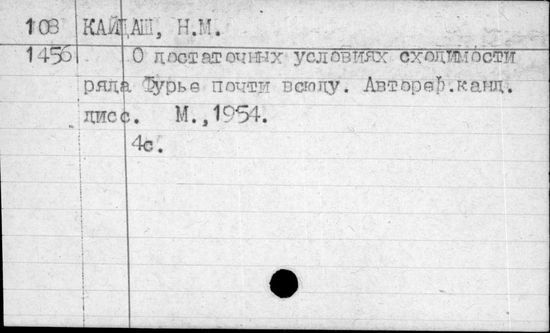 108 КАЙДАШ, Н.М.
1456 О достаточных условиях сходимости
ряда Фурье почти всюду. Автореф.канд.
дисс. М.,1954.
4с.